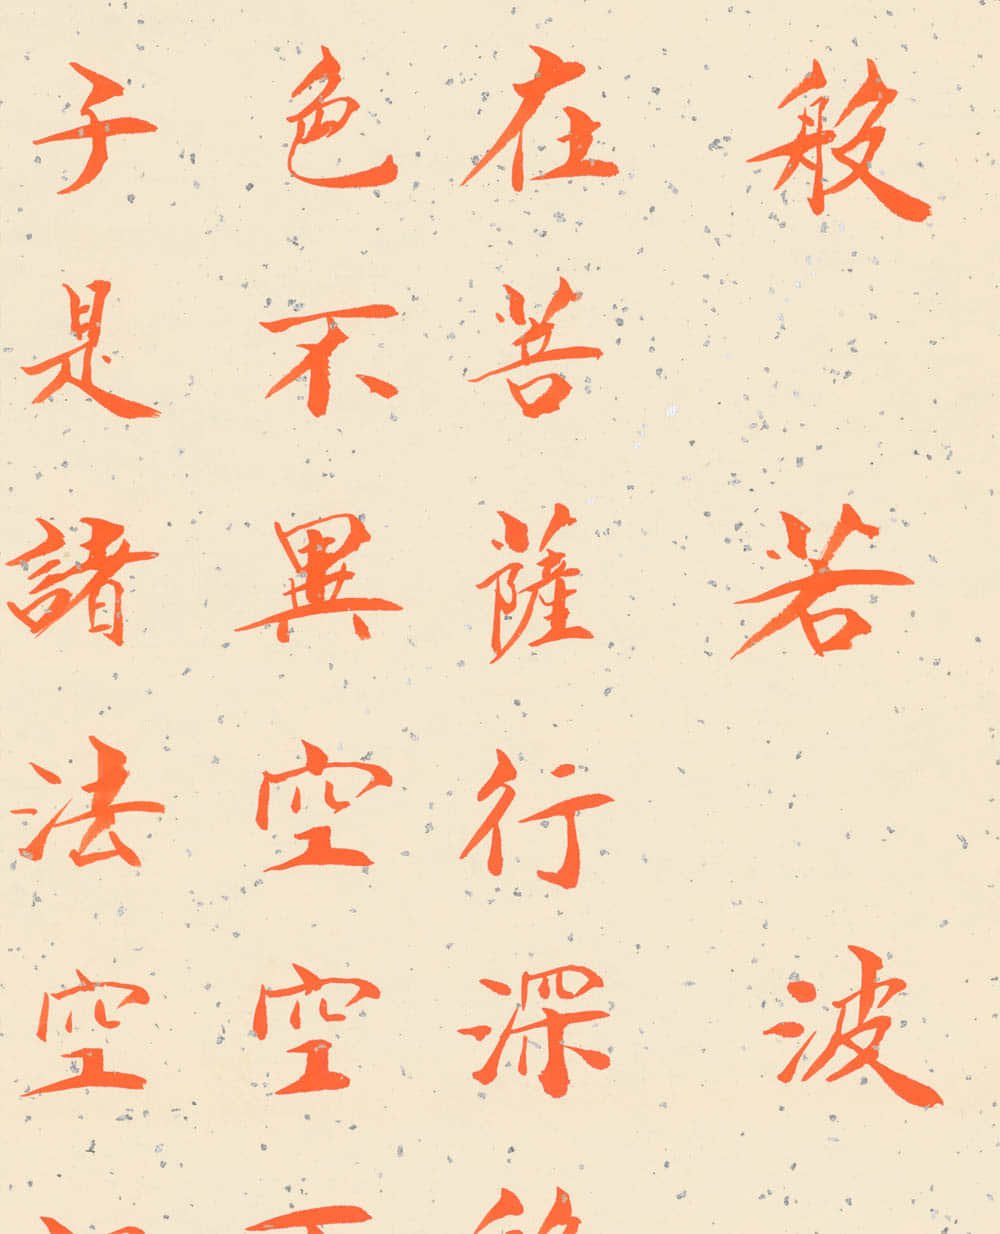 般若波
在菩薩行深
色不異空空
子是諸法空